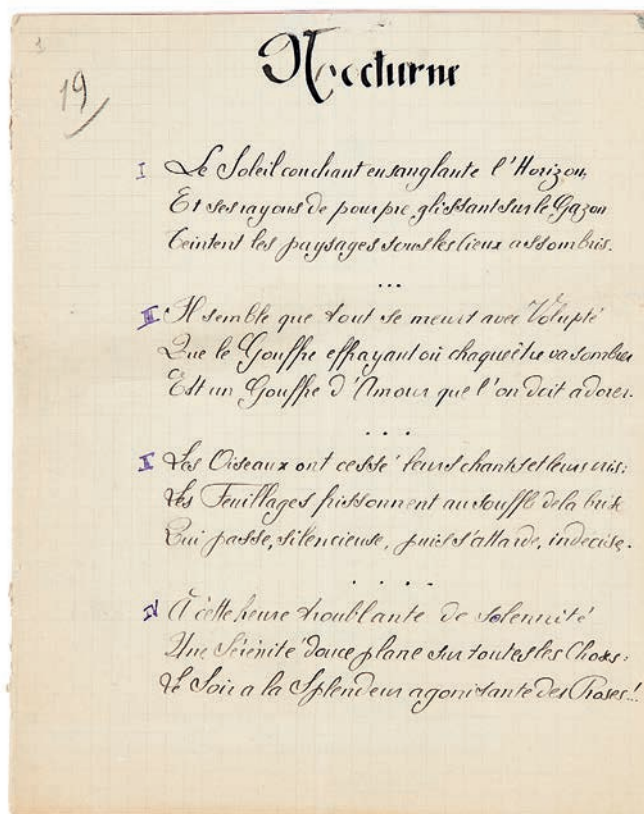 1
19
Nocturne
I Le Soleil couchant ensanglante l'Horizon,
Et ses rayons de pourpre, glissant sur le Gazon
Teintent les paysages sous les Cieux assombris.
...
III Il semble que tout se meurt avec Volupté
Que le Gouffre effrayant où chaque être va sombrer
Est un Gouffre d'Amour que l'on doit adorer.
....
II Les Oiseaux ont cessé leurs chants et leurs cris:
Les Feuillages frissonnent au souffle de la brise
Qui passe, silencieuse, puis s'attarde, indécise.
....
IV À cette heure troublante de solennité
Une Sérénité douce plane sur toutes les Choses:
Le Soir a la Splendeur agonisante des Roses!